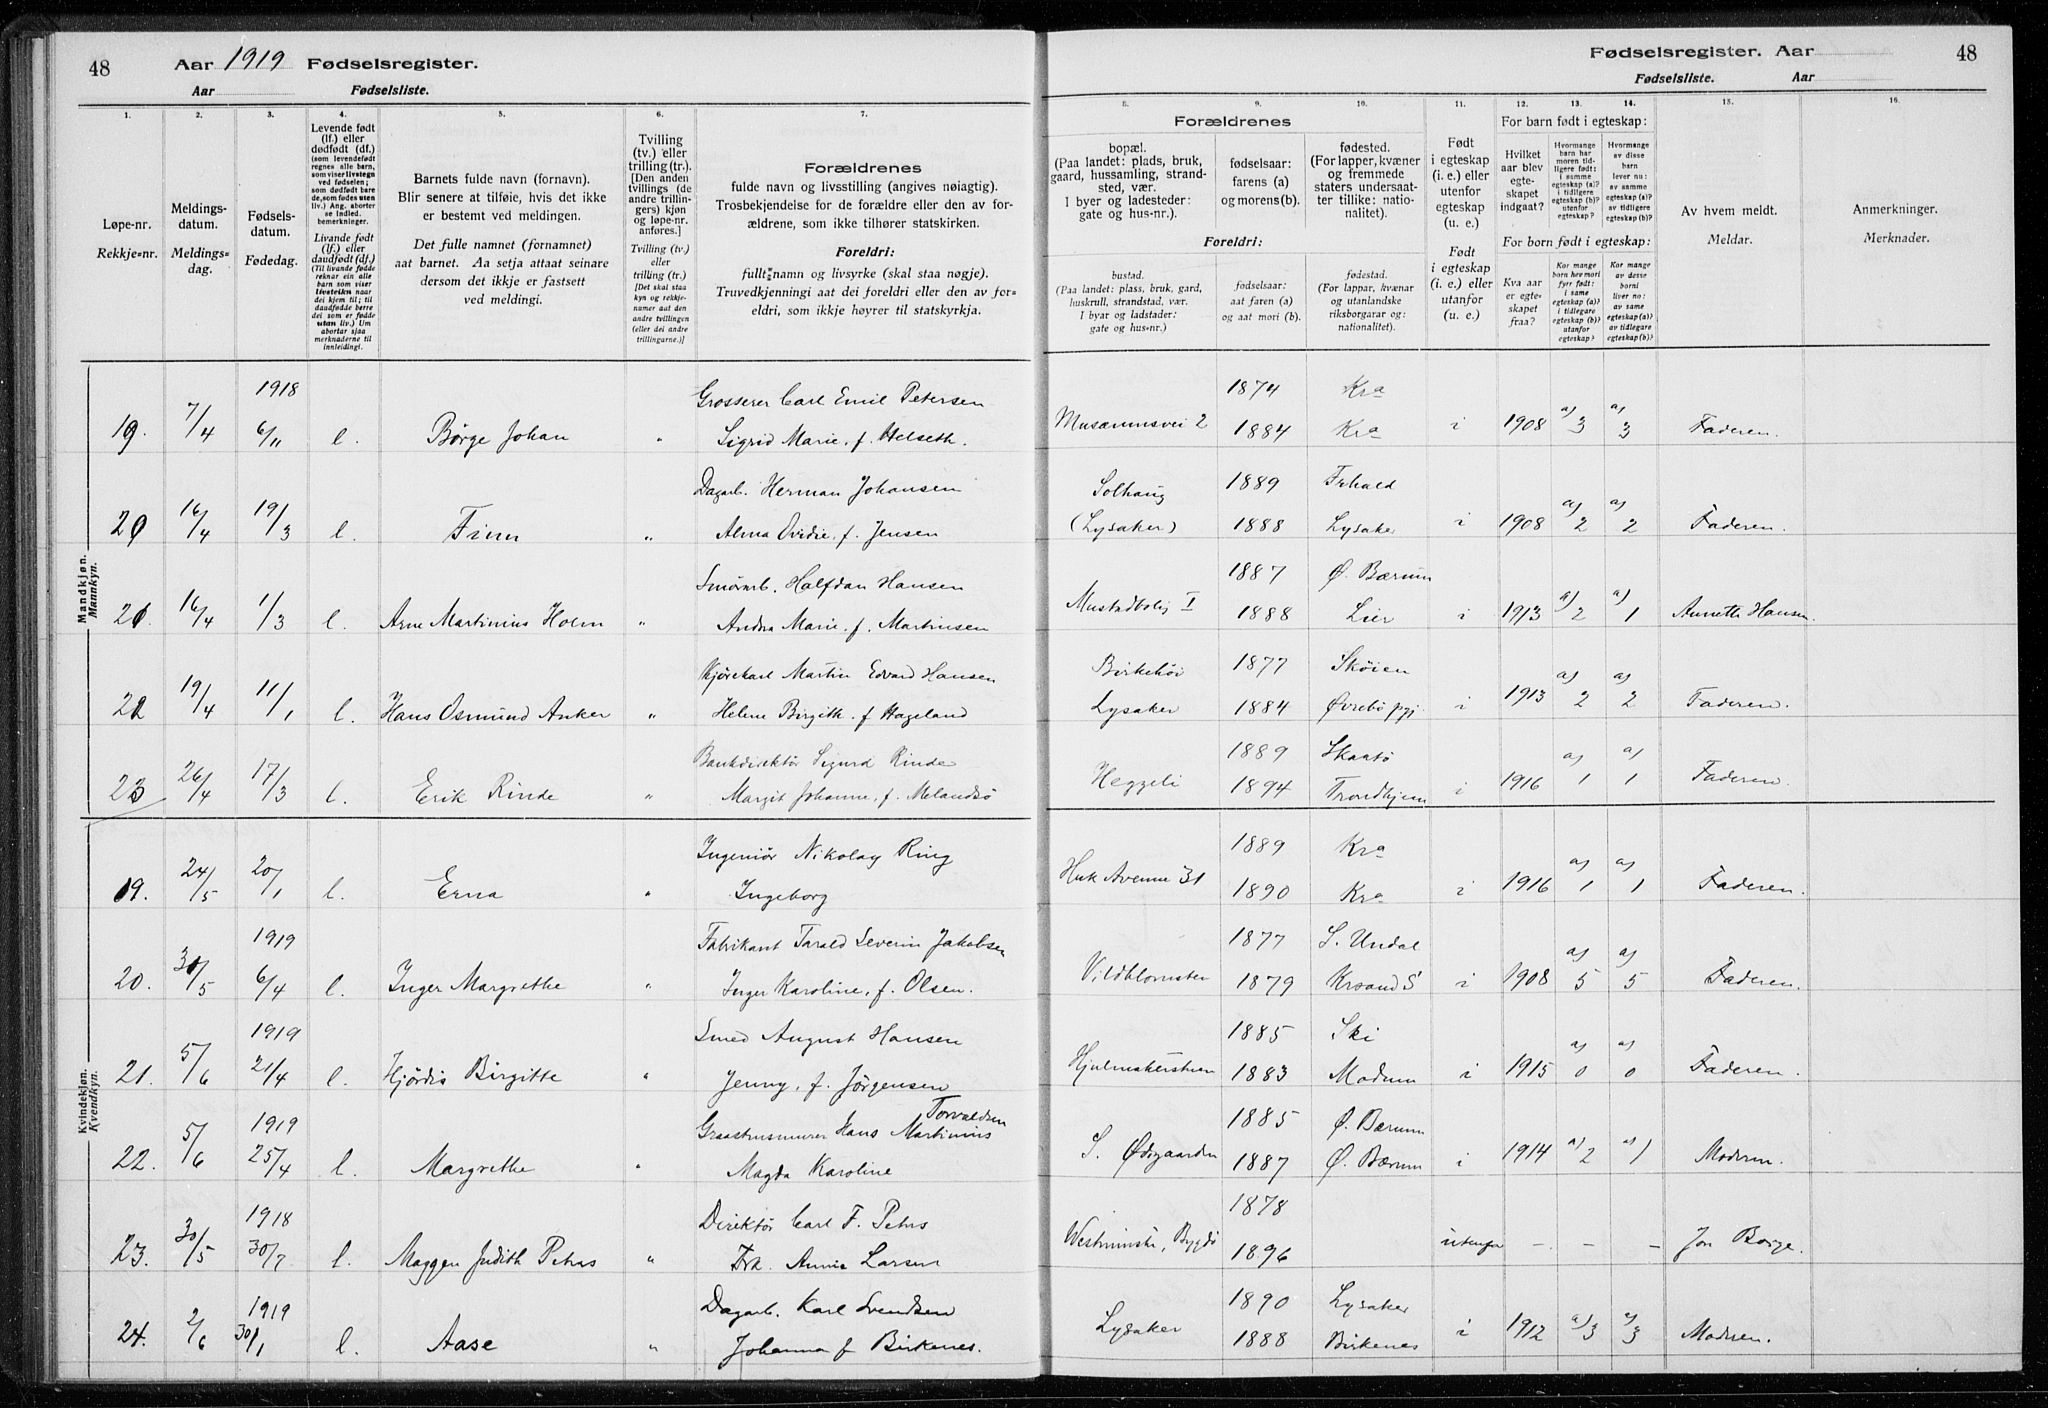 48 Aar 1919 Fødselsregister.
Aar Fødselsliste.
1. 2. 3. 4. 5. 6. 7.
Løpe-nr.
Rekkje=nr.
Meldings-
datum.
Meldings=
dag.
Fødsels-
datum.
Fødedag.
Levende født
(lf.) eller
dødfødt (df.)
(som levendefødt
regnes alle barn,
som viser livstegn
ved fødselen;
som dødfødt bare
de, som fødes uten
liv.) Ang. aborter
se indled.
bemerkninger.
Livande født
(lf.) eller
daudfødt (df.)
(Til livande fødde
reknar ein alle
barn som viser
livsteikn naar
dei kjem til; til
daudfødde berre
dei som er fødde
utan liv.) Um
abortar sjaa
merknaderne til
innleidingi.
Barnets fulde navn (fornavn).
Blir senere at tilføie, hvis det ikke
er bestemt ved meldingen.
Det fulle namnet (fornamnet)
aat barnet. Aa setja attaat seinare
dersom det ikkje er fastsett
ved meldingi.
Tvilling
(tv.) eller
trilling (tr.).
[Den anden
tvillings (de
andre trillin-
gers) kjøn
og løpe-nr.
anføres.]
Tvilling (tv.)
eller
trilling (tr.)
[Det skal staa
kyn og rekkje-
numer aat den
andre tvillingen
(eller dei andre
trillingarne.)]
Forældrenes
fulde navn og livsstilling (angives nøiagtig).
Trosbekjendelse for de forældre eller den av for-
ældrene, som ikke tilhører statskirken.
Foreldri:
fullt namn og livsyrke (skal staa nøgje).
Truvedkjenningi aat dei foreldri eller den av for=
eldri, som ikkje høyrer til statskyrkja.
Mandkjøn.
Mannkyn.
19. 7/4 1918 6/11 l. Børge Johan " Grosserer Carl Emil Petersen
Sigrid Marie, f. Helseth.
20 16/4 19/3 l. Finn " Dagarb. Herman Johansen
Alma Ovidie, f. Jensen
21 16/4 1/3 l. Arne Martinius Holm " Smørarb. Halfdan Hansen
Andra Marie, f. Martinsen
22 19/4 11/1 l. Hans Osmund Anker " Kjørekarl Martin Edvard Hansen
Helene Birgith. f. Hageland
23 26/4 17/3 l. Erik Rinde " Bankdirektør Sigurd Rinde
Margit Johanne, f. Melandsø
Kvindekjøn.
Kvendkyn.
19. 24/5 20/1 l. Erna " Ingeniør Nikolay Ring
Ingeborg
20. 30/5 1919 6/4 l. Inger Margrethe " Fabrikant Tarald Severin Jakobsen
Inger Karoline, f. Olsen.
21. 5/6 1919 21/4 l. Hjørdis Birgitte " Smed August Hansen
Jenny, f. Jørgensen
22. 5/6 1919 25/4 l. Margrethe " Graastensmurer Hans Martinius Torvaldsen
Magda Karoline
23. 30/5 1918 30/7 l. Maggen Judith Peters " Direktør Carl F. Peters
Frk. Annie Larsen
24. 2/6 1919 30/1 l. Aase " Dagarb. Karl Svendsen
Johanna f Birkenes.
Fødselsregister. Aar 48
Fødselsliste. Aar
8. 9. 10. 11. 12. 13. 14. 15. 16.
Forældrenes
bopæl.
(Paa landet: plads, bruk,
gaard, hussamling, strand-
sted, vær.
I byer og ladesteder:
gate og hus-nr.).
fødselsaar:
farens (a)
og morens (b).
fødested.
(For lapper, kvæner
og fremmede
staters undersaat-
ter tillike: natio-
nalitet).
Foreldri:
bustad.
(Paa landet: plass, bruk, gard,
huskrull, strandstad, vær.
I byar og ladstader:
gate og hus=nr.)
fødselsaar:
aat faren (a)
og aat mori (b).
fødestad.
(For lappar, kvænar
og utanlandske
riksborgarar og:
nationalitet).
Født
i egteskap
(i. e.) eller
utenfor
egteskap
(u. e.)
Født
i egteskap
(i. e.) eller
utanfor
(u. e.)
For barn født i egteskap:
Hvilket
aar blev
egte-
skapet
indgaat?
Hvormange
barn har
moren tid-
ligere født:
i samme
egteskap (a)?
i tidligere
egteskap (b)?
utenfor
egteskap?
Hvormange
av disse
barn
lever nu:
av samme
egteskap (a)?
av tidligere
egteskap (b)?
For born født i egteskap:
Kva aar
er egte=
skapet
fraa?
Kor mange
born hev mori
fyrr født:
i same
egteskap (a)?
i tidlegare
egteskap (b)?
utanfor
egteskap?
Kor mange
av desse
borni
liver no:
av same
egteskap (a)?
av tidlegare
egteskap (b)?
Av hvem meldt.
Meldar.
Anmerkninger.
Merknader.
1874 Kra
Musæumsvei 2 1884 Kra i 1908 a) 3 a) 3 Faderen.
Solhaug 1889 Frhald
(Lysaker) 1888 Lysaker i 1908 a) 2 a) 2 Faderen.
1887 Ø. Bærum
Mustadbolig I 1888 Lier i 1913 a) 2 a) 1 Annette Hansen.
Birkehøi 1877 Skøien
Lysaker 1884 Øvrebø pgj i 1913 a) 2 a) 2 Faderen.
1889 Skaatø
Heggeli 1894 Trondhjem i 1916 a) 1 a) 1 Faderen.
1889 Kra
Huk Avenue 31 1890 Kra i 1916 a) 1 a) 1 Faderen.
1877 S. Undal
Vildblomsten 1879 Krsand S i 1908 a) 5 a) 5 Faderen.
1885 Ski
1883 Modum i 1915 a) 0 a) 0 Faderen.
1885 Ø. Bærum
S. Ødegaarden 1887 Ø. Bærum i 1914 a) 2 a) 1 Moderen.
1878
Bygdø 1896 utenfor - - - Jon Borge.
1890 Lysaker
Lysaker 1888 Birkenes i 1912 a) 3 a) 3 Moderen.